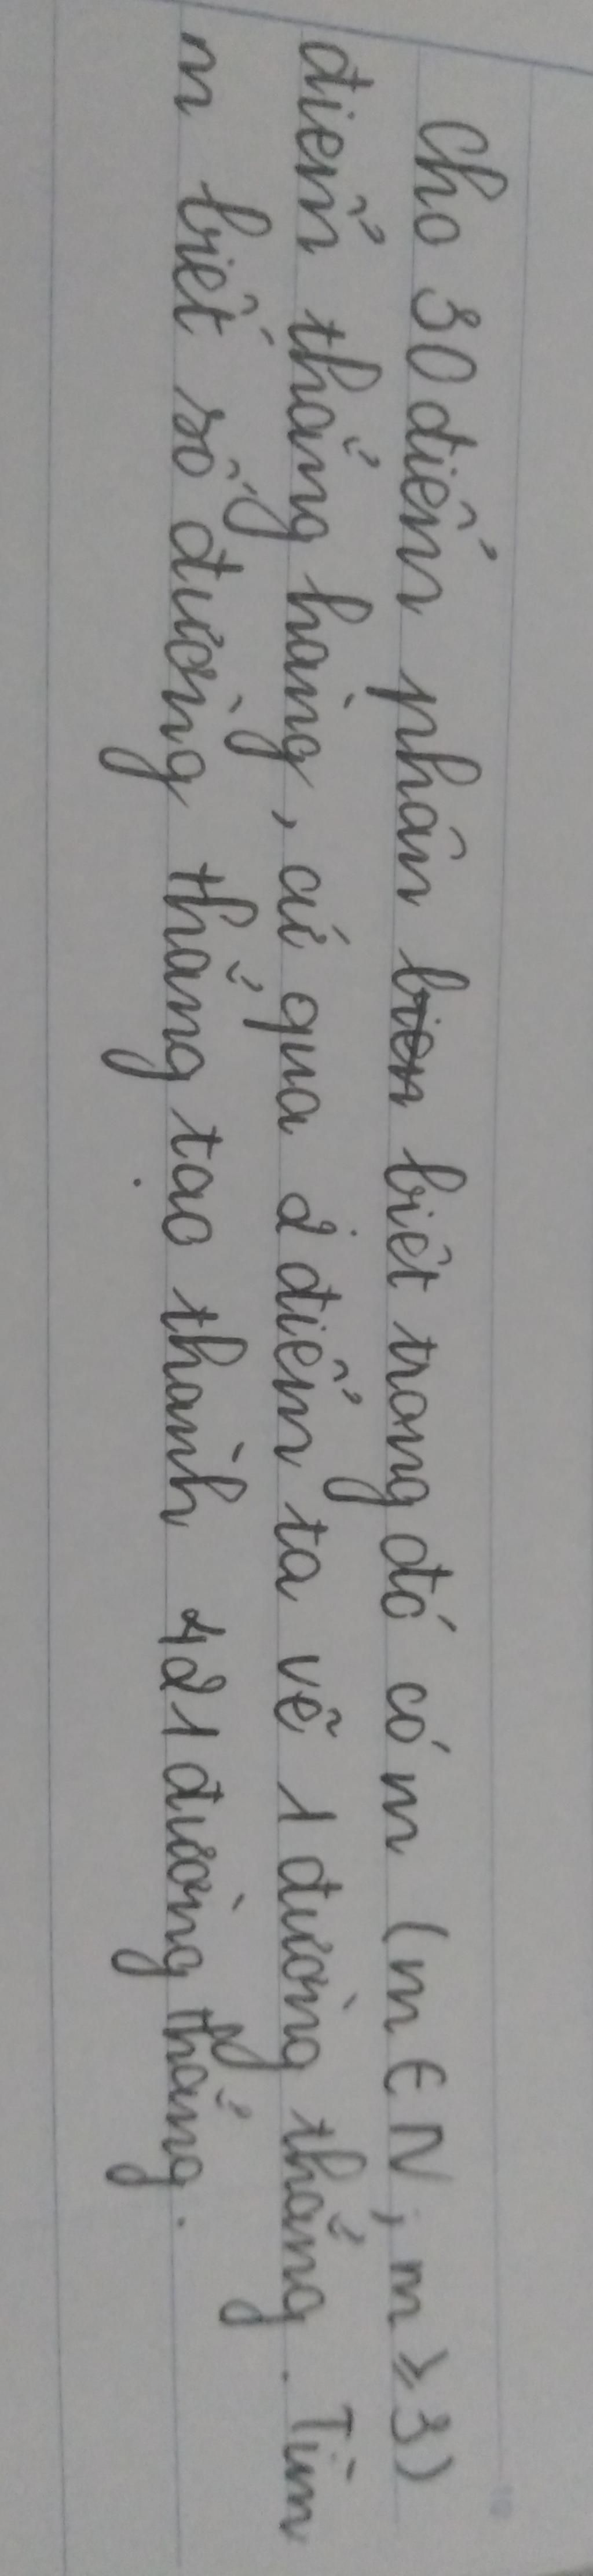 Cho 30 điểm phân biệt trong đó có m (m ∈ N, m ≥ 3)
điểm thẳng hàng, cứ qua 2 điểm ta vẽ 1 đường thẳng. Tìm
m biết số đường thẳng tạo thành 421 đường thẳng.